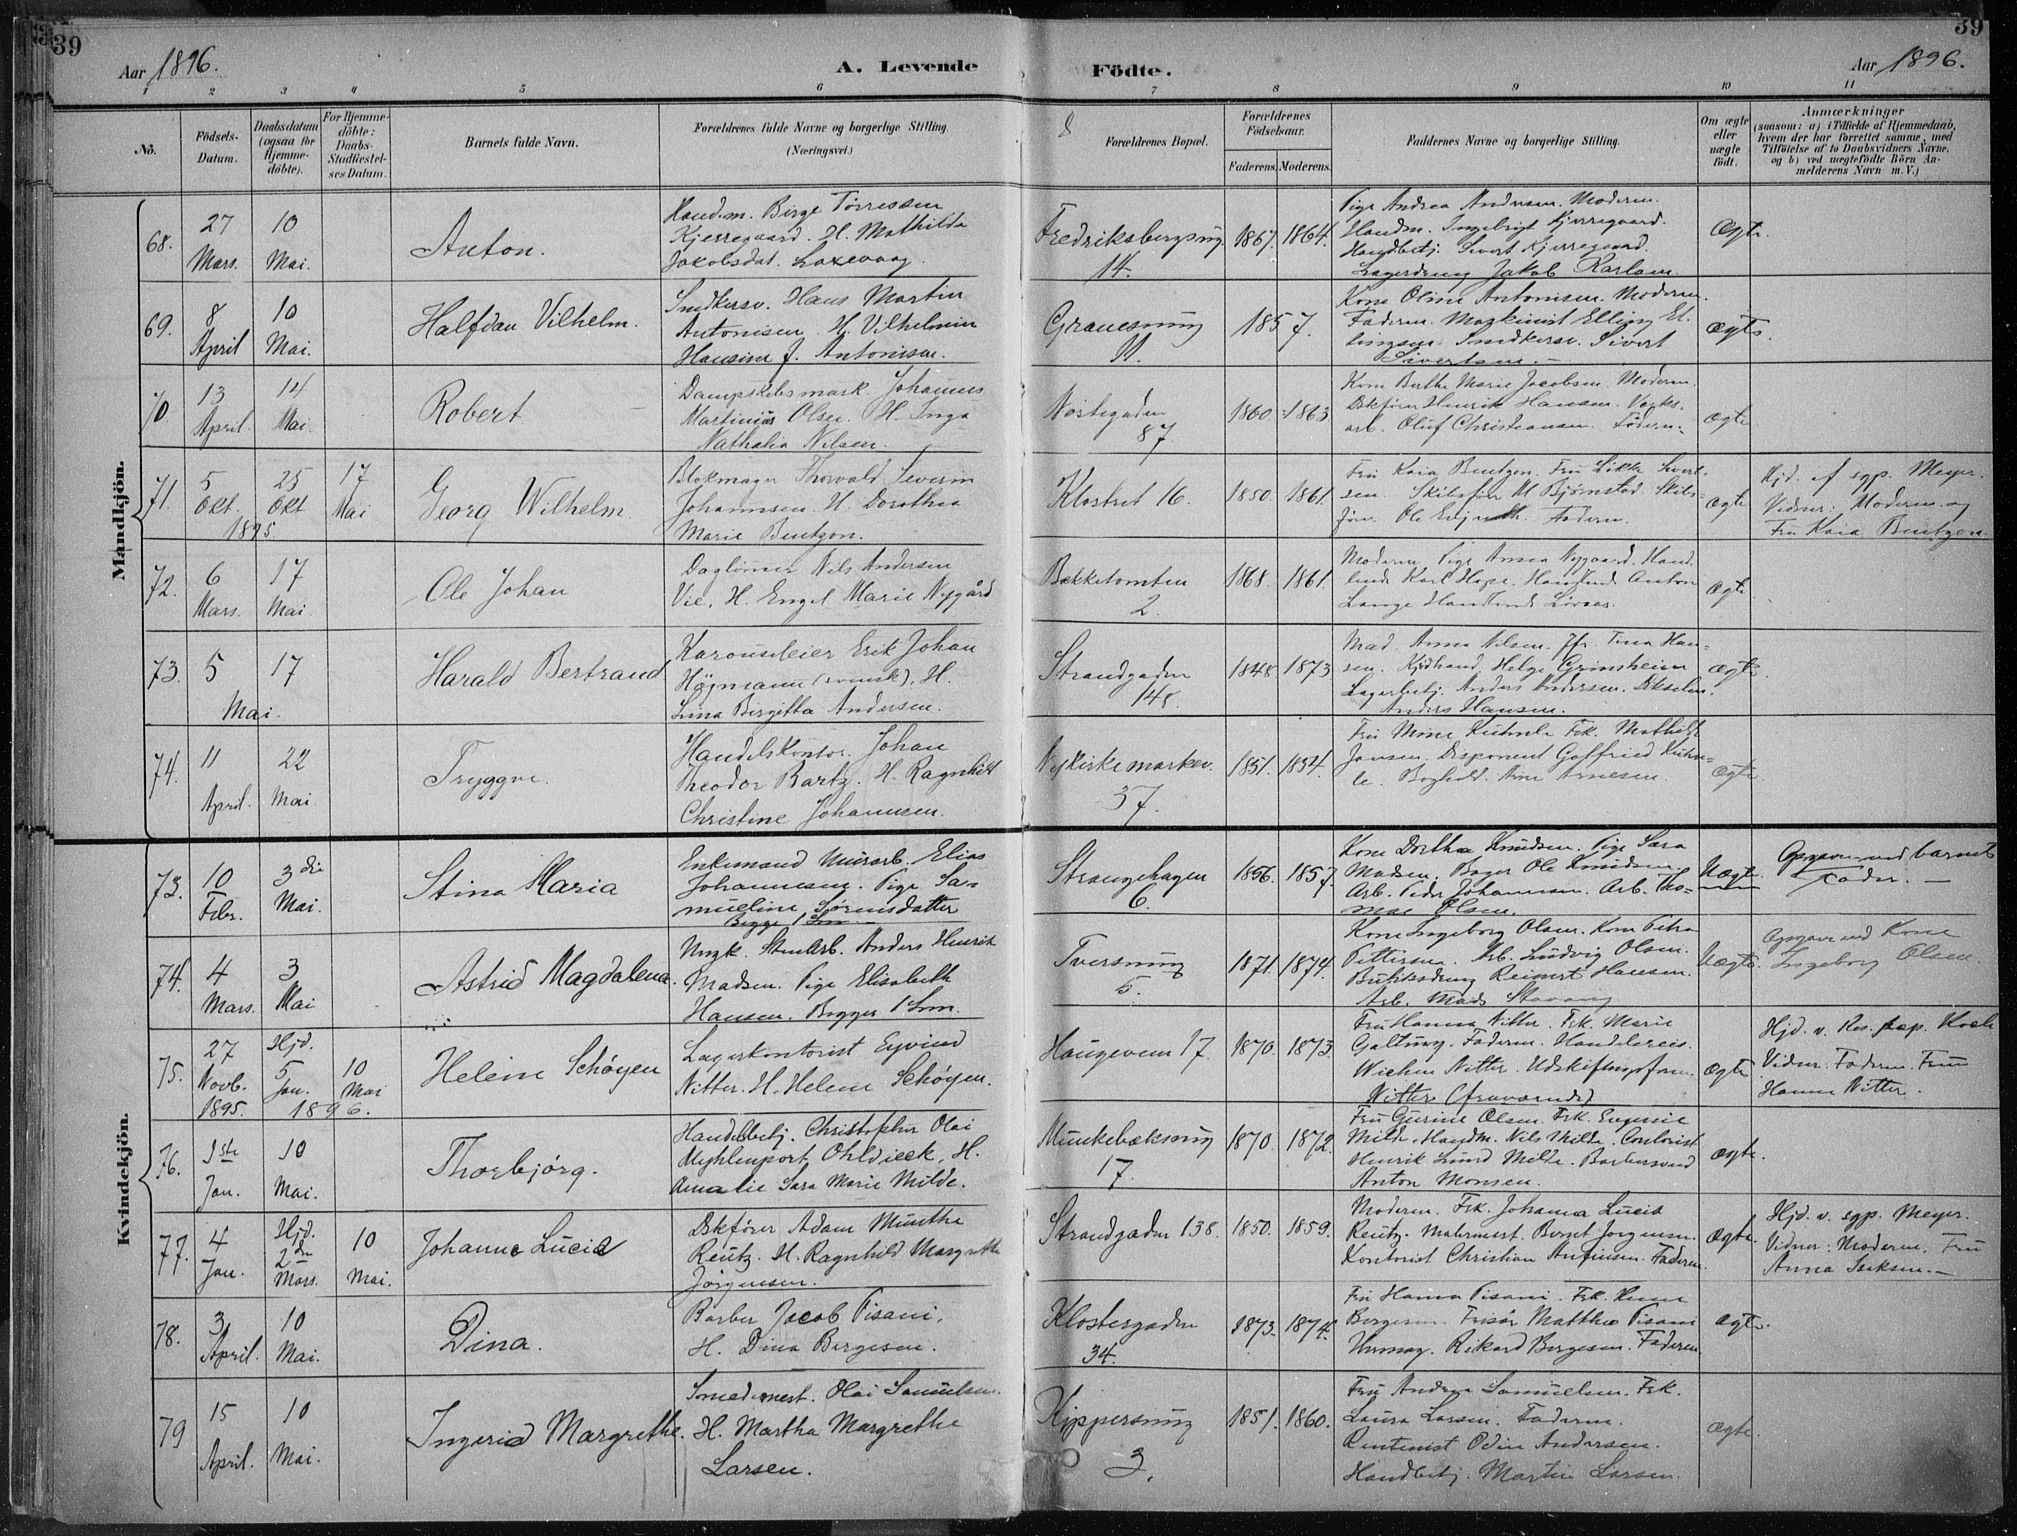 39
39
Aar 1896.
A. Levende
Födte.
Aar 1896.
1 2 3 4 5 6 7 8 9 10 11
No.
Födsels-Datum.
Daabsdatum (ogsaa for Hjemme-döbte).
For Hjemme-döbte: Daabs-Stadfæstel-ses Datum.
Barnets fulde Navn.
Forældrenes fulde Navne og borgerlige Stilling.
(Næringsvei.)
Forældrenes Bopæl.
Forældrenes Födselsaar.
Faderens. Moderens.
Faddernes Navne og borgerlige Stilling.
Om ægte eller uægte födt.
Anmærkninger
(saasom: a) i Tilfælde af Hjemmedaab, hvem der har forrettet samme, med Tilföielse af to Daabsvidners Navne, og b) ved uægtefödte Börn An-melderens Navn m. V.)
Mandkjön.
68. 27 Mars. 10 Mai.
Anton.
Handm. Birge Tørressen
Kjerregaard. H. Mathilda
Jakobsdat. Laxevaag
Fredriksbergsmg. 14.
1867. 1864.
Pige Andrea Andersen. Moderen.
Handm. Ingebrigt Kjerregaard.
Handbetj. Sivert Kjerregaard.
Lagerdreng Jakob Karlsen.
Ægte.
69. 8 April 10 Mai.
Halfdan Vilhelm.
Snedkersv. Hans Martin
Antonisen H. Vilhelmine
Hansine f. Antonisen.
Granesmug 11.
1857.
Kone Oline Antonisen. Moderen.
Faderen. Maskinist Elling El-
lingsen. Snedkersv. Sivert
Sivertsen.
Ægte.
70. 13 April. 14 Mai.
Robert
Dampskibsmask. Johannes
Martinius Olsen. H. Inga
Nathalia Nilsen.
Nøstegaden 87
1860. 1863.
Kone Berthe Marie Jacobsen. Moderen.
Dskfører Henrik Hansen. Værks.
arb. Oluf Christiansen. Faderen.
ægte
71. 5 Okt. 1895. 25 Okt 17 Mai
Georg Wilhelm.
Blokmager Thorvald Severin
Johannsen. H. Dorothea
Marie Bentzon.
Klostret 16.
1850. 1861.
Fru Kaia Bentzon. Fru Sivert-
sen. Skibsfører M Bjørnstad. Skibs-
før. Ole. Faderen.
ægte
Hjd. af sgp. Meyer.
Vidner: Moderen og
Fru Kaia Bentzon.
72. 6 Mars. 17 Mai
Ole Johan
Daglønner Nils Andersen
Vie. H. Engel Marie Nygård
Bakketomten 2.
1868. 1861.
Moderen. Pige Anna Nygaard. Hand-
lende Karl Hope. Handlende Anton
Lange Handlende Løvaas.
ægte
73. 5 17 Mai.
Harald Bertrand
Karouseleier Erik Johan
Höjmann (svensk). H.
Lina Birgitta Andersen.
Strandgaden 148.
1848 1873
Mad. Anna Nilsen. Jfr. Tina Han-
sen. Kjødhand. Helge Grimsheim
Lagerbetj. Anders Andersen.
Anders Hansen.
ægte.
74. 11 April. 22 Mai.
Tryggve.
Handelskontor. Johan
Theodor Bartz. H. Ragnhild
Christine Johannsen.
Nykirkemarkev. 37.
1851. 1854.
Fru Mine Kuhnle. Frk. Mathilde
Jansen. Disponent Gotfried Kuhn-
le. Boghold. Arne Arnesen.
ægte.
Kvindekjön.
73. 10 Febr. 3die Mai.
Stina Maria
Enkemand Murarb. Elias
Johannesen. Pige Sa-
mueline Sørensdatter
Begge 1 Sm.
Strangehagen 6.
1856. 1857.
Kone Dorthea Knudsen. Pige Sara
Madsen. Bager Ole Knudsen
Arb. Peder Johannsen. Arb. Tho-
mas Olsen.
Uægte.
Opgaven ved barnets
Fader.
74. 4 Mars. 3 Mai
Astrid Magdalena.
Ungk. Stenarb. Anders Henrik
Madsen. Pige Elisabeth
Hansen. Begges 1 Sm.
Tversmug 5.
1871. 1874.
Kone Ingeborg Olsen. Kone Petra
Pettersen. Arb. Ludvig Olsen.
Butiksdreng Reinert Hansen.
Arb. Mads Stavang
Uægte.
Opgave ved Kone
Ingeborg Olsen.
75. 27 Novb. 1895. Hjd. 5 Jan. 10 Mai 1896.
Helene Schöyen
Lagerkontorist Eyvind
Nitter. H. Helene Schöyen.
Haugeveien 17.
1870. 1873.
Fru Hanna Nitter. Frk. Marie
Galtung. Faderen. Handelsreis.
Wilhelm Nitter. Udskiftningsform.
Nitter (fraværende)
ægte
Hjd. v. Res. kap. Koch
Vidner: Faderen. Fru
Hanna Nitter.
76. 1ste Jan. 10 Mai.
Thorbjörg.
Handelbetj. Christopher Olai
Myhlenport Ohldieck. H.
Amalie Sara Marie Milde.
Munkebæksmug 17.
1870. 1872.
Fru Gurine Olsen. Frk. Eugenie
Milde. Handm. Nils Milde. Contorist
Henrik Lund Milde. Barbersvend
Anton Monsen.
ægte.
77. 4 Jan. Hjd. 2den Mars. 10 Mai.
Johanne Lucia
Dskfører Adam Munthe
Reutz. H. Ragnhild Margrethe
Jørgensen.
Strandgaden 138.
1850. 1859.
Moderen. Frk. Johanna Lucia
Reutz. Malermest. Bernt Jørgensen.
Kontorist Christian Anfinsen. Faderen.
ægte.
Hjd. v. sgp. Meyer.
Vidner: Moderen. Fru
Anna Isaksen.
78. 3 April. 10 Mai.
Dina.
Barber Jacob Pisani.
H. Dina Birgesen.
Klostergaden 34.
1873. 1874.
Fru Hanna Pisani. Frk.
Borgesen. Frisør Mattheo Pisani
Urmag. Rikard Borgesen. Faderen
ægte.
79 15 April. 10 Mai.
Ingerid Margrethe.
Smedemest. Olai Samuelsen.
H. Martha Margrethe
Larsen.
Kippersmug 3.
1851. 1860.
Fru Andrea Samuelsen. Frk.
Laura Larsen. Faderen.
Rentenist Odin Andersen.
Handbetj. Martin Larsen.
ægte.